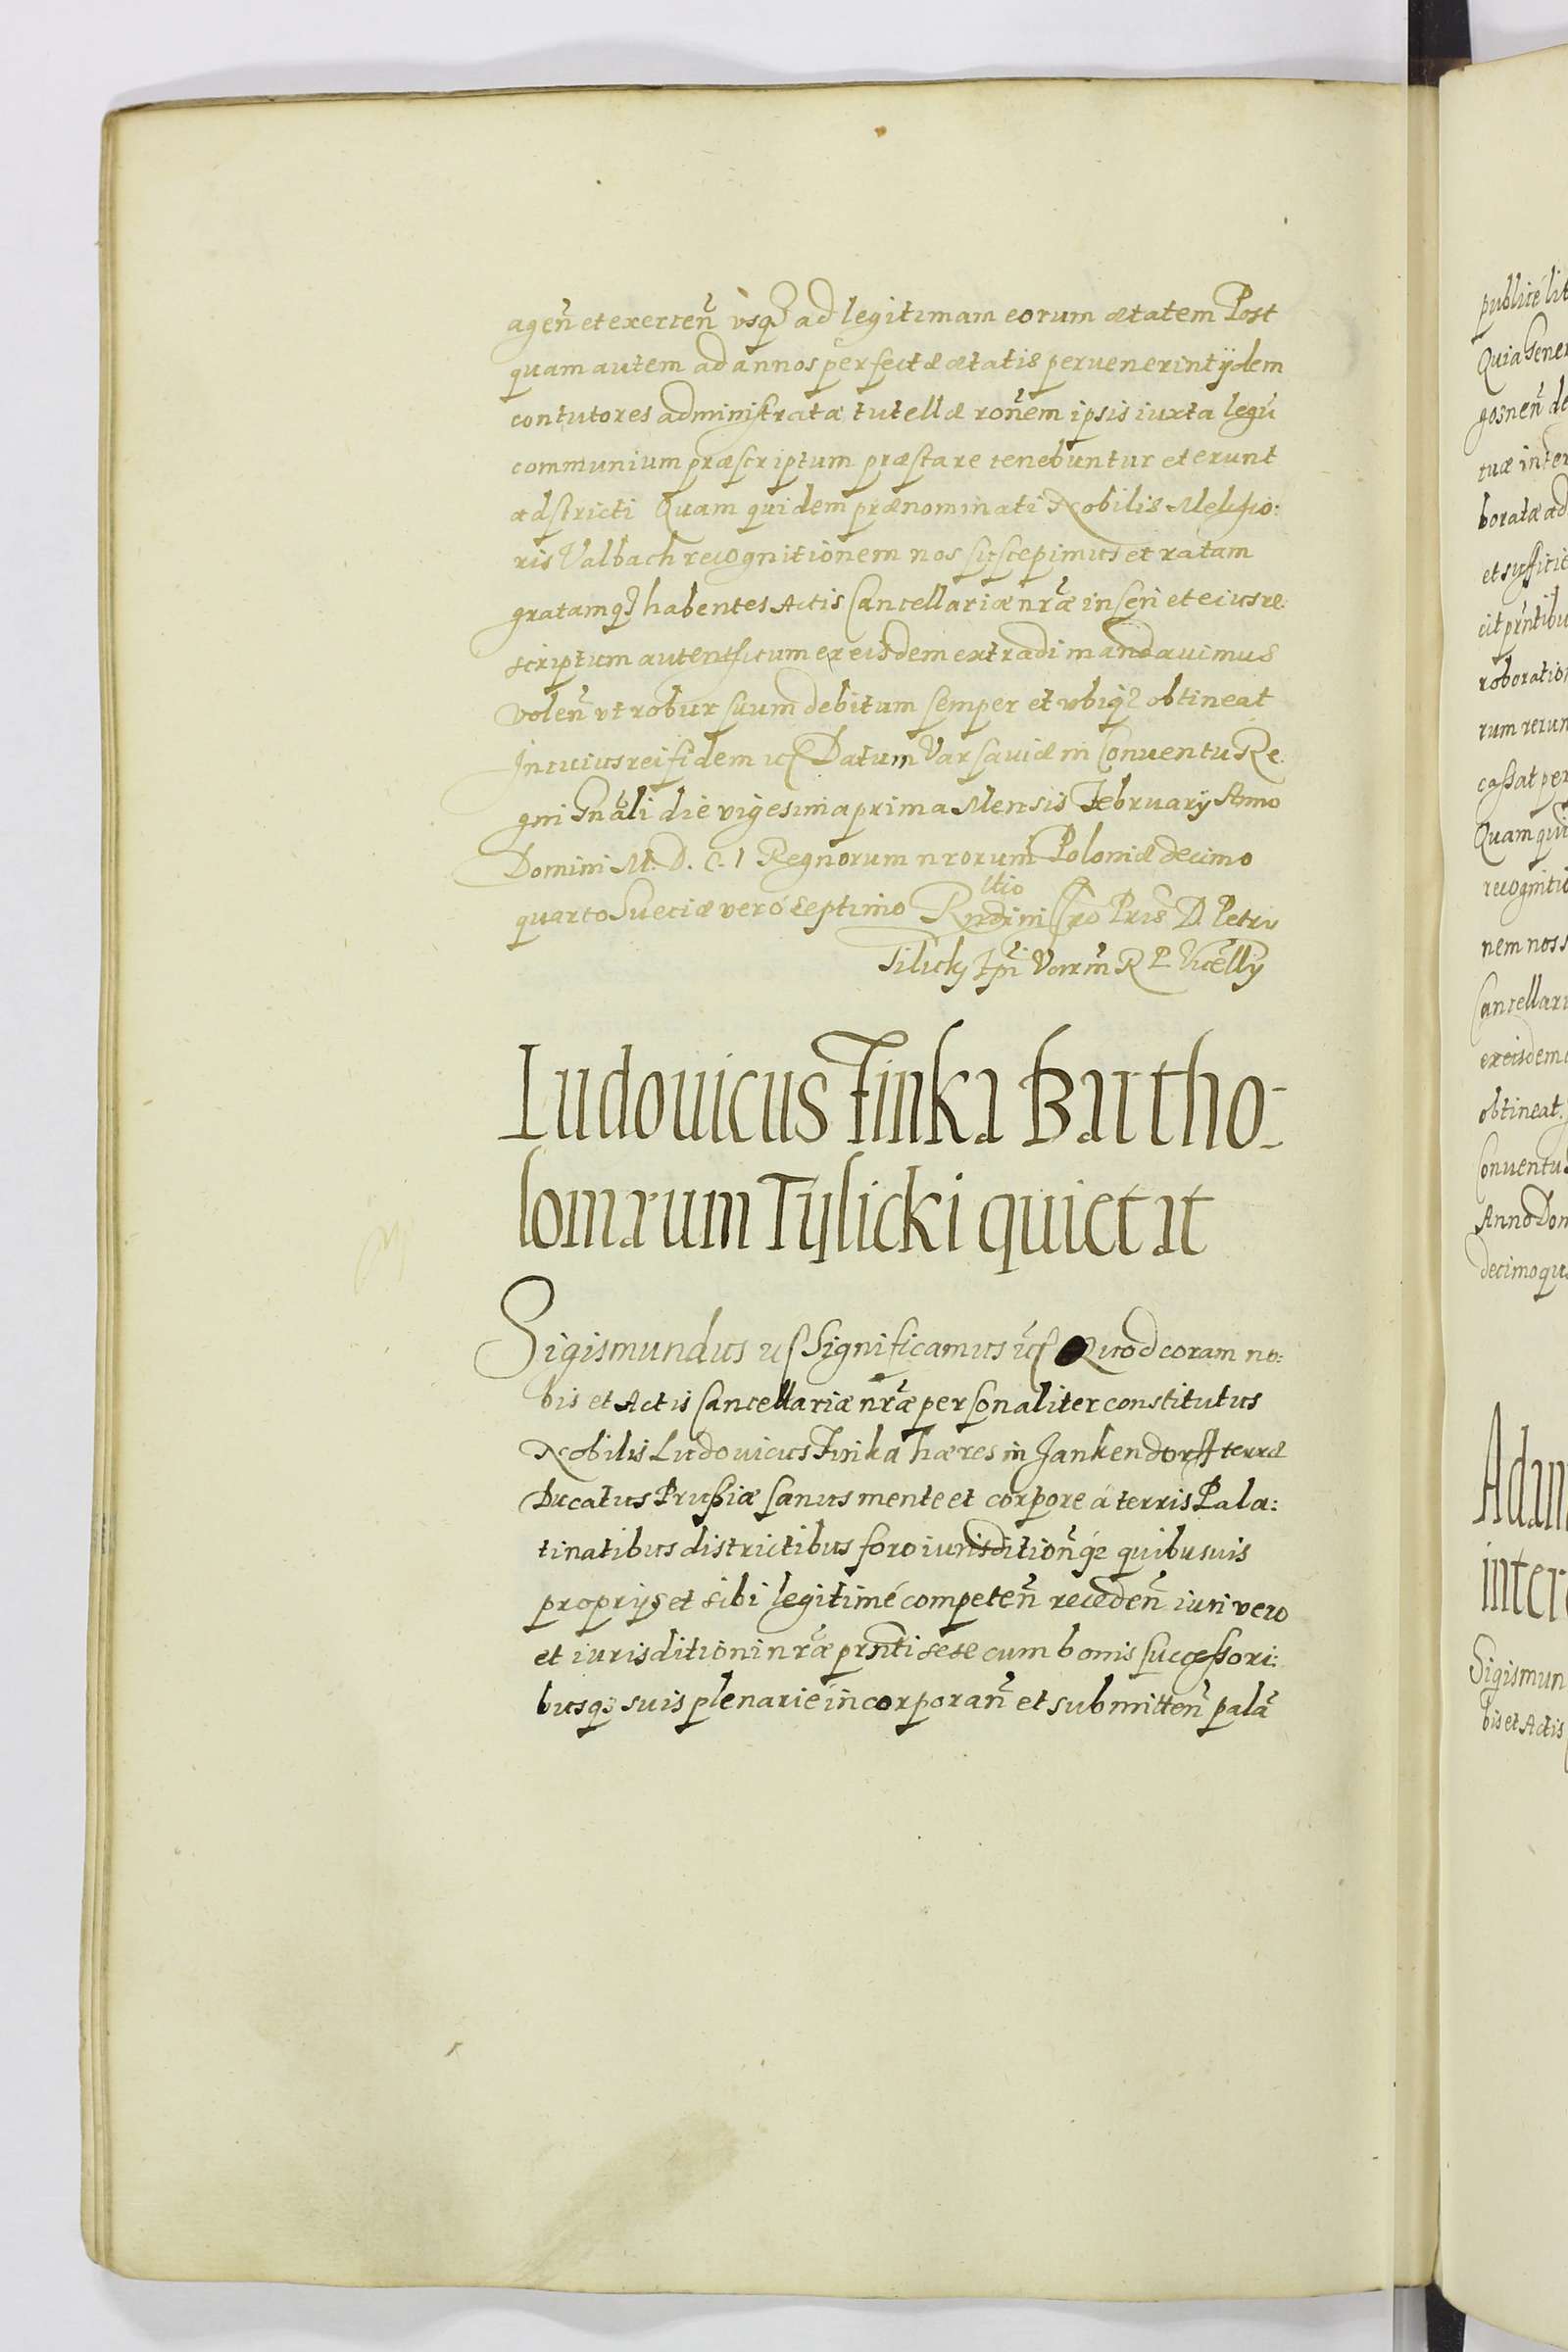 agen̄ et exercen̄ vsq₃ ad legitimam eorum ætatem Post
quam autem ad annos perfectæ ætatis peruenerint ijdem
contutores administratæ tutellæ ron̄em ipsis iuxta legū
communium præscriptum præstare tenebuntur et erunt
adstricti Quam quidem prænominati Nobilis Melchio:
ris Valbach recognitionem nos suscepimus et ratam
gratamq₃ habentes Actis Cancellariæ nr̄æ inseri et eius re:
scriptum autenthicum ex eisdem extradi mandauimus
volen̄ vt robur suum debitum semper et vbiq₃ obtineat
In cuius rei fidem etc Datum Varsauiæ in Conuentu Re:
gni Gn̄ali die vigesima prima Mensis February Anno
Domini M. D. C. I Regnorum nrorum Poloniæ decimo
quarto Sueciæ vero Septimo R Pris D. Petri
Tilicky Ep̄i Varm̄ R P Vicēlly
Ludouicus Finka Bartho-
lomæum Tÿlicki quietat
Sigismundus etc Significamus etc Quod coram no:
bis et Actis Cancellariæ nr̄æ personaliter constitutus
Nobilis Ludouicus Finka hæres in Jankendorff terræ
Ducatus Prußiæ sanus mente et corpore á terris Pala:
tinatibus districtibus foro iurisdition̄q₃ quibusuis
proprijs et sibi legitimé competen̄ receden̄ iuri vero
et iurisditioni nr̄æ prn̄ti sese cum bonis succeßori:
busq₃ suis plenarié incorporan̄ et submitten̄ palā
publicé lit
Quia Gener
gosnen̄ de
tuæ inter
boratæ ad
et sufficie
cit prn̄tibu
roboration
rum rerum
caßat per
Quam qui
recognitio
nem nos s
Cancellari
ex eisdem
obtineat.
Conuentu
Anno Dom
decimo qu
Adam
inter
Sigismun
bis et Actis